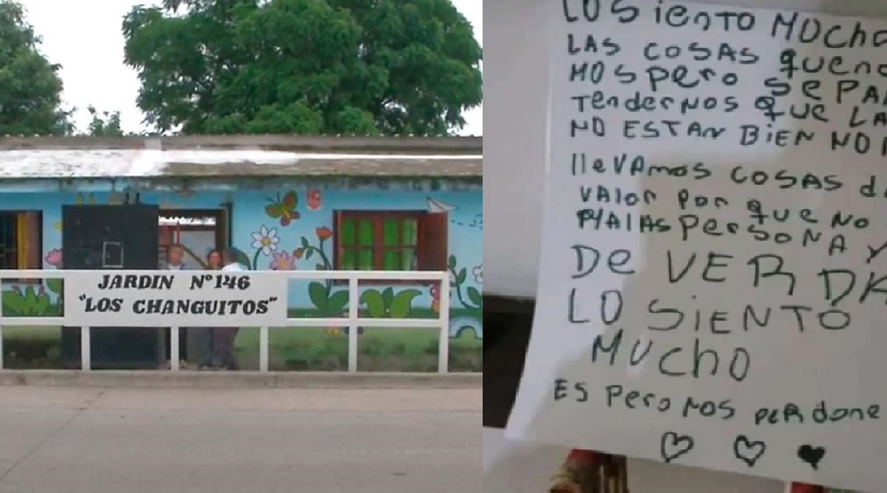 JARDIN Nº146
"LOS CHANGUITOS"
LO SiENTO MUCHO
LAS COSAS
MOS PERO SEPAN
TENDERNOS QUE LA
NO ESTAN BIEN NO
llEVAMOS COSAS d
VALOR POR QUE NO
MALAS PERSONA Y
DE VERDA
LO SiENTO
MUCHO
ESPERO NOS PERDONE